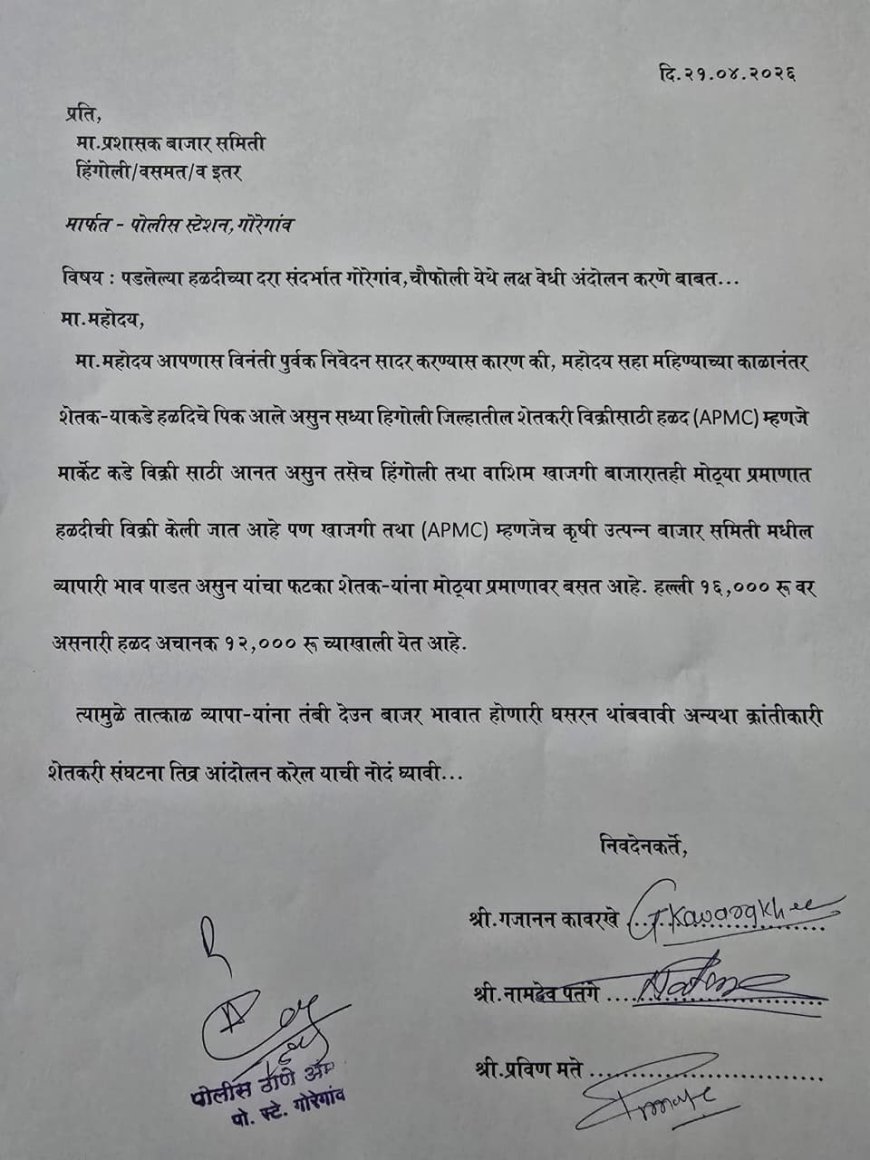 दि.२१.०४.२०२६
प्रति,
मा.प्रशासक बाजार समिती
हिंगोली/वसमत/व इतर
मार्फत - पोलीस स्टेशन,गोरेगांव
विषय : पडलेल्या हळदीच्या दरा संदर्भात गोरेगांव,चौफोली येथे लक्ष वेधी अंदोलन करणे बाबत...
मा.महोदय,
मा.महोदय आपणास विनंती पुर्वक निवेदन सादर करण्यास कारण की, महोदय सहा महिण्याच्या काळानंतर
शेतक-याकडे हळदिचे पिक आले असुन सध्या हिगोली जिल्हातील शेतकरी विक्रीसाठी हळद (APMC) म्हणजे
मार्केट कडे विक्री साठी आनत असुन तसेच हिंगोली तथा वाशिम खाजगी बाजारातही मोठ्या प्रमाणात
हळदीची विक्री केली जात आहे पण खाजगी तथा (APMC) म्हणजेच कृषी उत्पन्न बाजार समिती मधील
व्यापारी भाव पाडत असुन यांचा फटका शेतक-यांना मोठ्या प्रमाणावर बसत आहे. हल्ली १६,००० रू वर
असनारी हळद अचानक १२,००० रू च्याखाली येत आहे.
त्यामुळे तात्काळ व्यापा-यांना तंबी देउन बाजर भावात होणारी घसरन थांबवावी अन्यथा क्रांतीकारी
शेतकरी संघटना तिव्र आंदोलन करेल याची नोदं घ्यावी...
निवदेनकर्ते,
श्री.गजानन कावरखे G.Kavarkhe
श्री.नामदेव पतंगे ....
श्री.प्रविण मते ....
पोलीस ठाणे
पो. स्टे. गोरेगांव